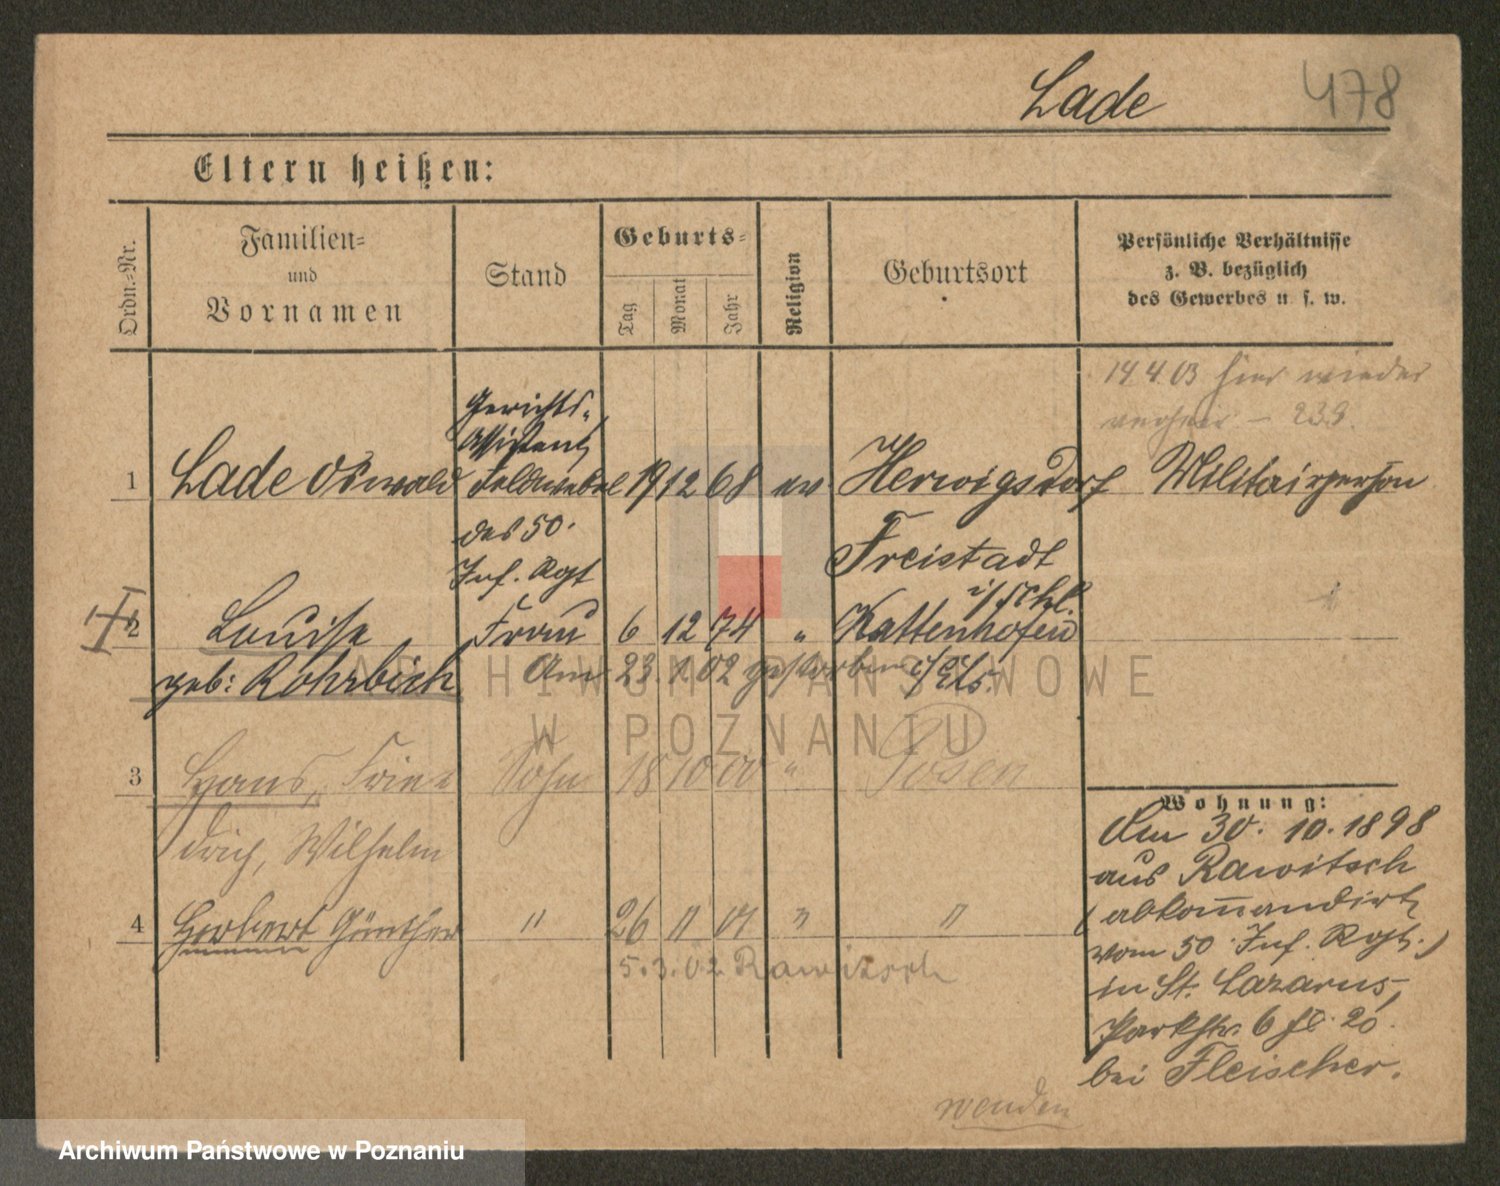 Lade 478
Eltern heißen:
Ordn.-Nr.
Familien-
und
Vornamen
Stand
Geburts-
Tag
Monat
Jahr
Religion
Geburtsort
Persönliche Verhältnisse
z. B. bezüglich
des Gewerbes u. s. w.
14 4 03 hier wieder
238.
Gerichts-
Assistent
1 Lade Oswald Feldwebel 19 12 68 ev. Herwigsdorf Militairperson
des 50.
Inf. Rgt
Freistadt
i/Schl.
2 Louise Frau 6 12 74 " Kattenhofen
geb: Rohrbach Am 23. 1. 02 gestorben i/Els.
3 Hans, Frie- Sohn 18 10 00 " Posen
drich, Wilhelm
4 Herbert Günther " 26 11 01 " "
5. 3. 02 Rawitsch
Wohnung:
Am 30. 10. 1898
aus Rawitsch
(abkommandirt
vom 50 Inf. Rgt.)
in St. Lazarus,
Parkstr. 6
bei Fleischer.
wenden
ARCHIWUM PAŃSTWOWE
W POZNANIU
Archiwum Państwowe w Poznaniu